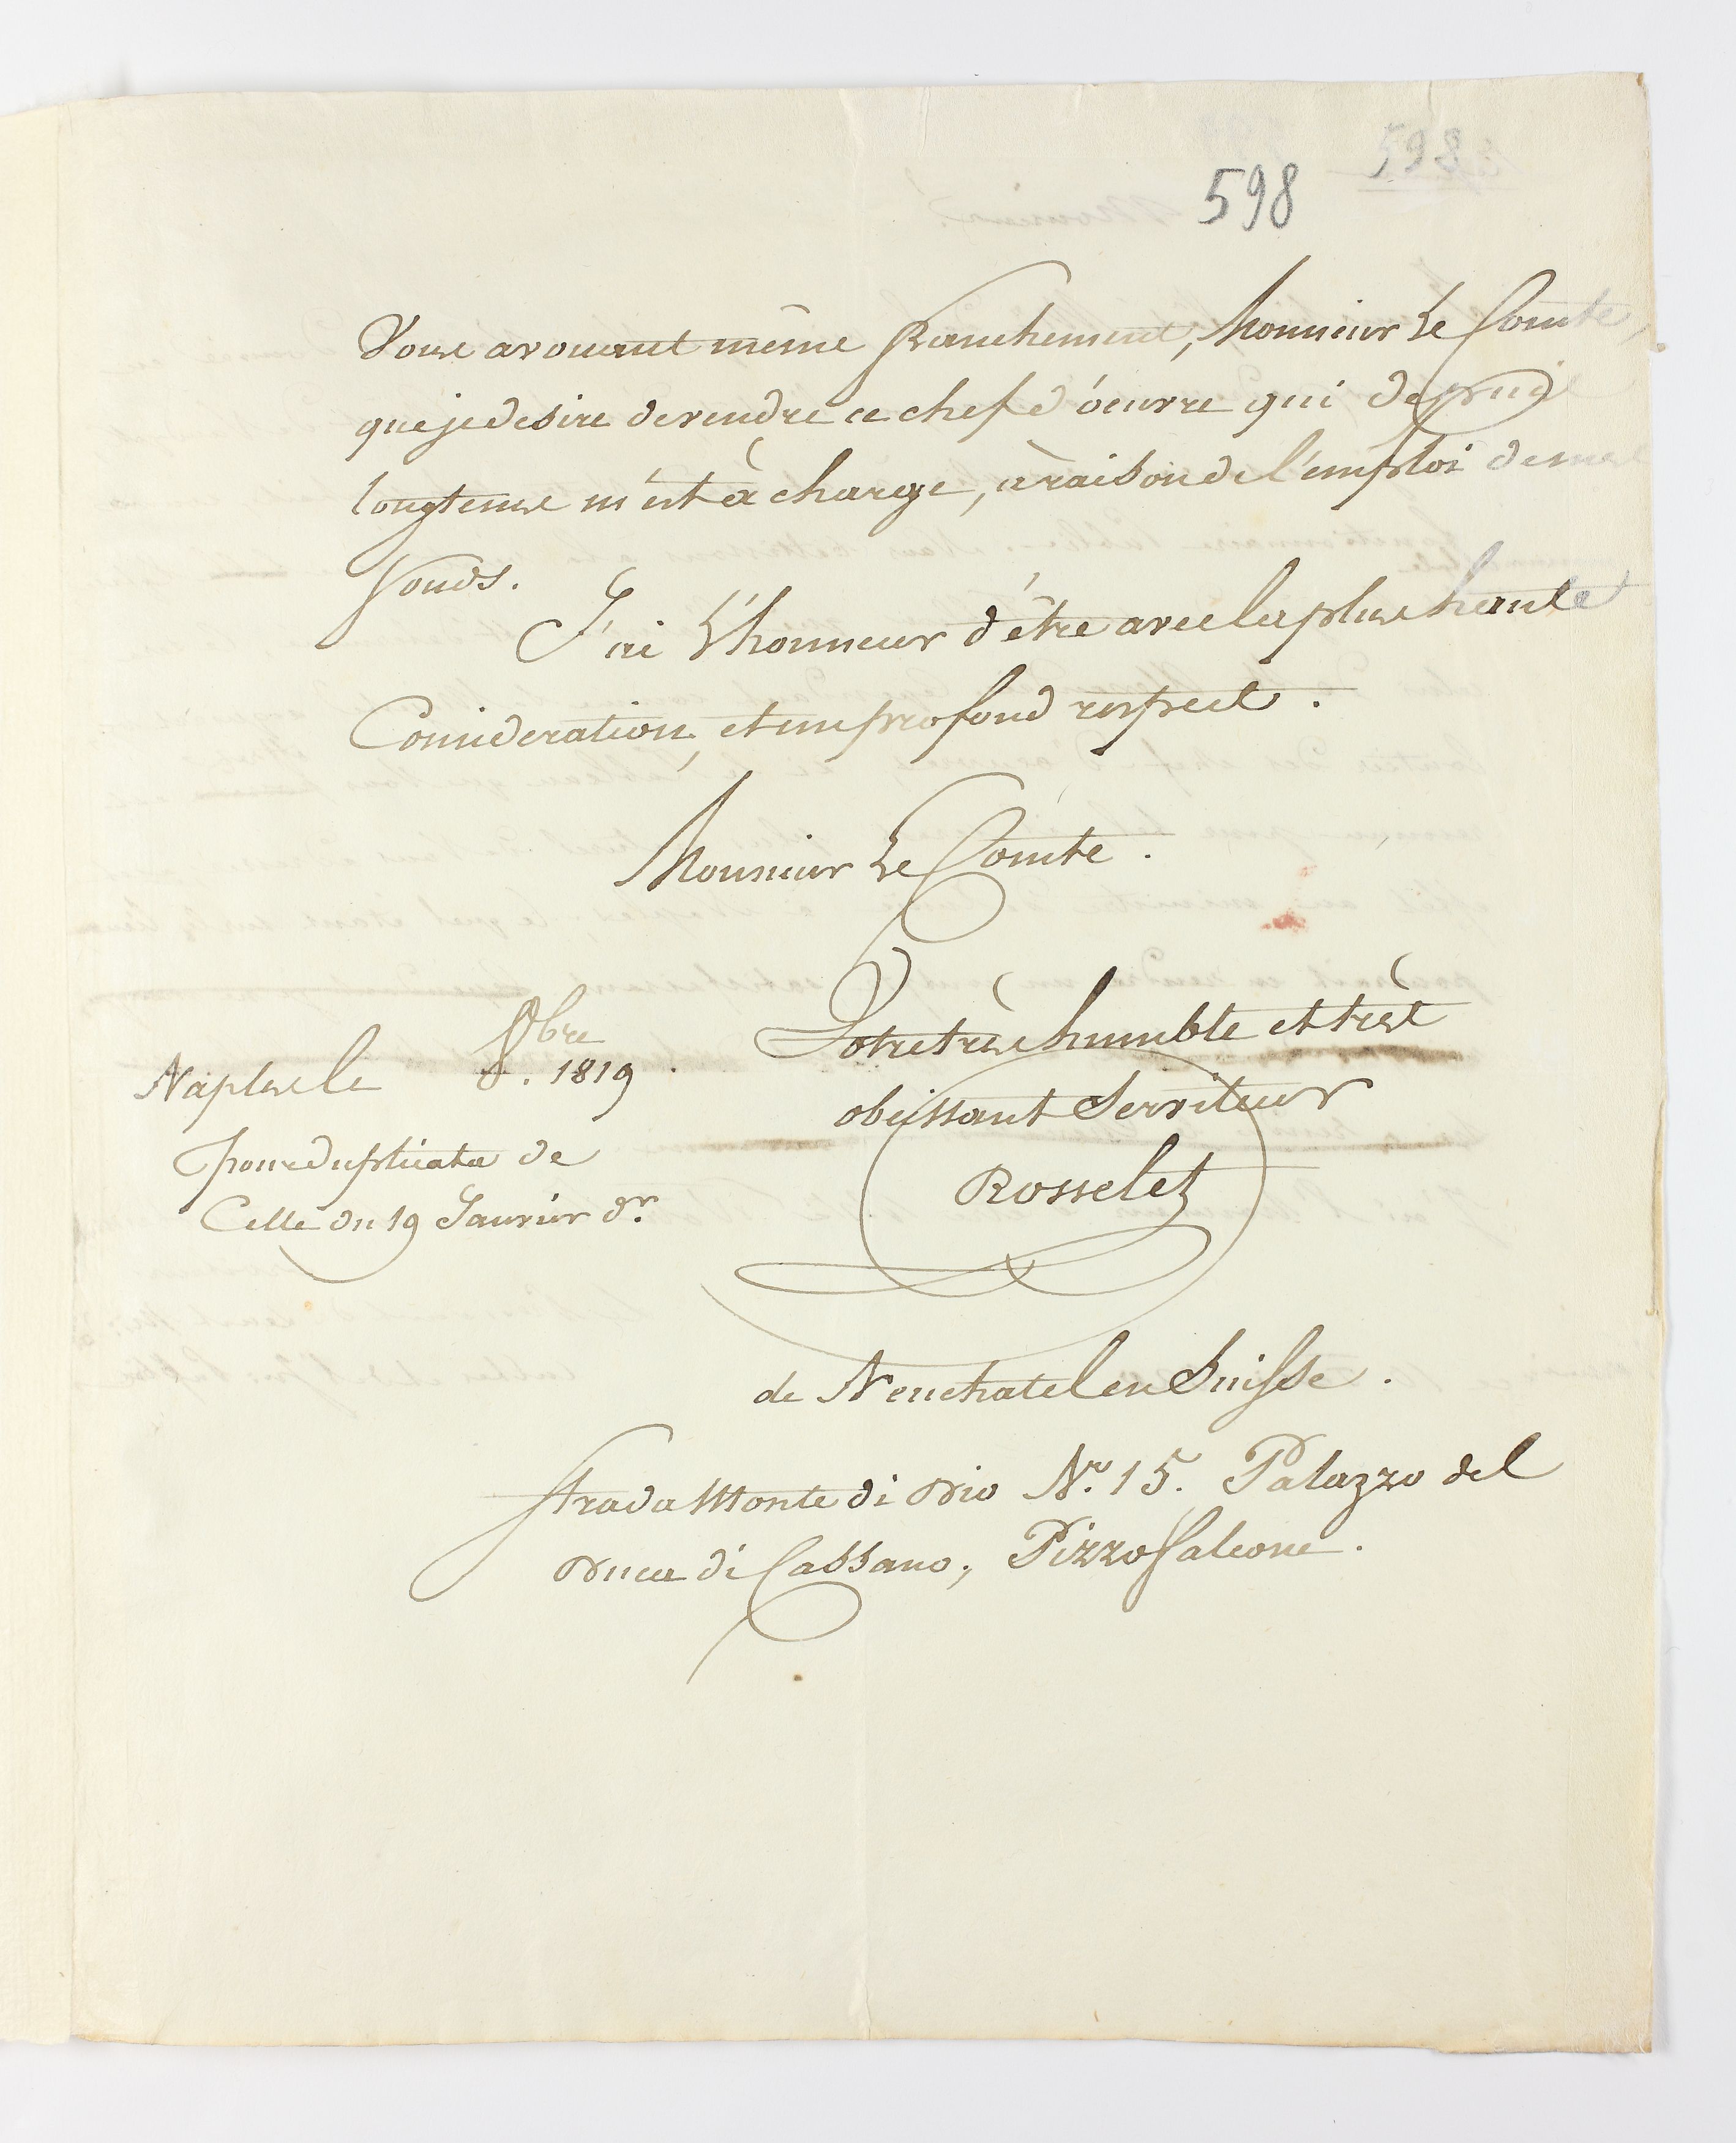 598
Vous avouant même franchement, Monsieur Le Comte,
que je desire de vendre ce chef d'oeuvre qui depuis
longtems m'est à charge, à raison de l'emploi de mes
fonds.
J'ai L'honneur d'être avec la plus haute
Consideration, et un profond respect.
Monsieur Le Comte.
Votre très humble et très
obeissant Serviteur
Rosselet
Naples le 8bre 1819.
pour duplicata de
Celle du 19 Janvier dr.
de Neuchatel en Suisse.
Strada Monte di Dio No. 15. Palazzo del
Duca di Cassano, Pizzo falcone.